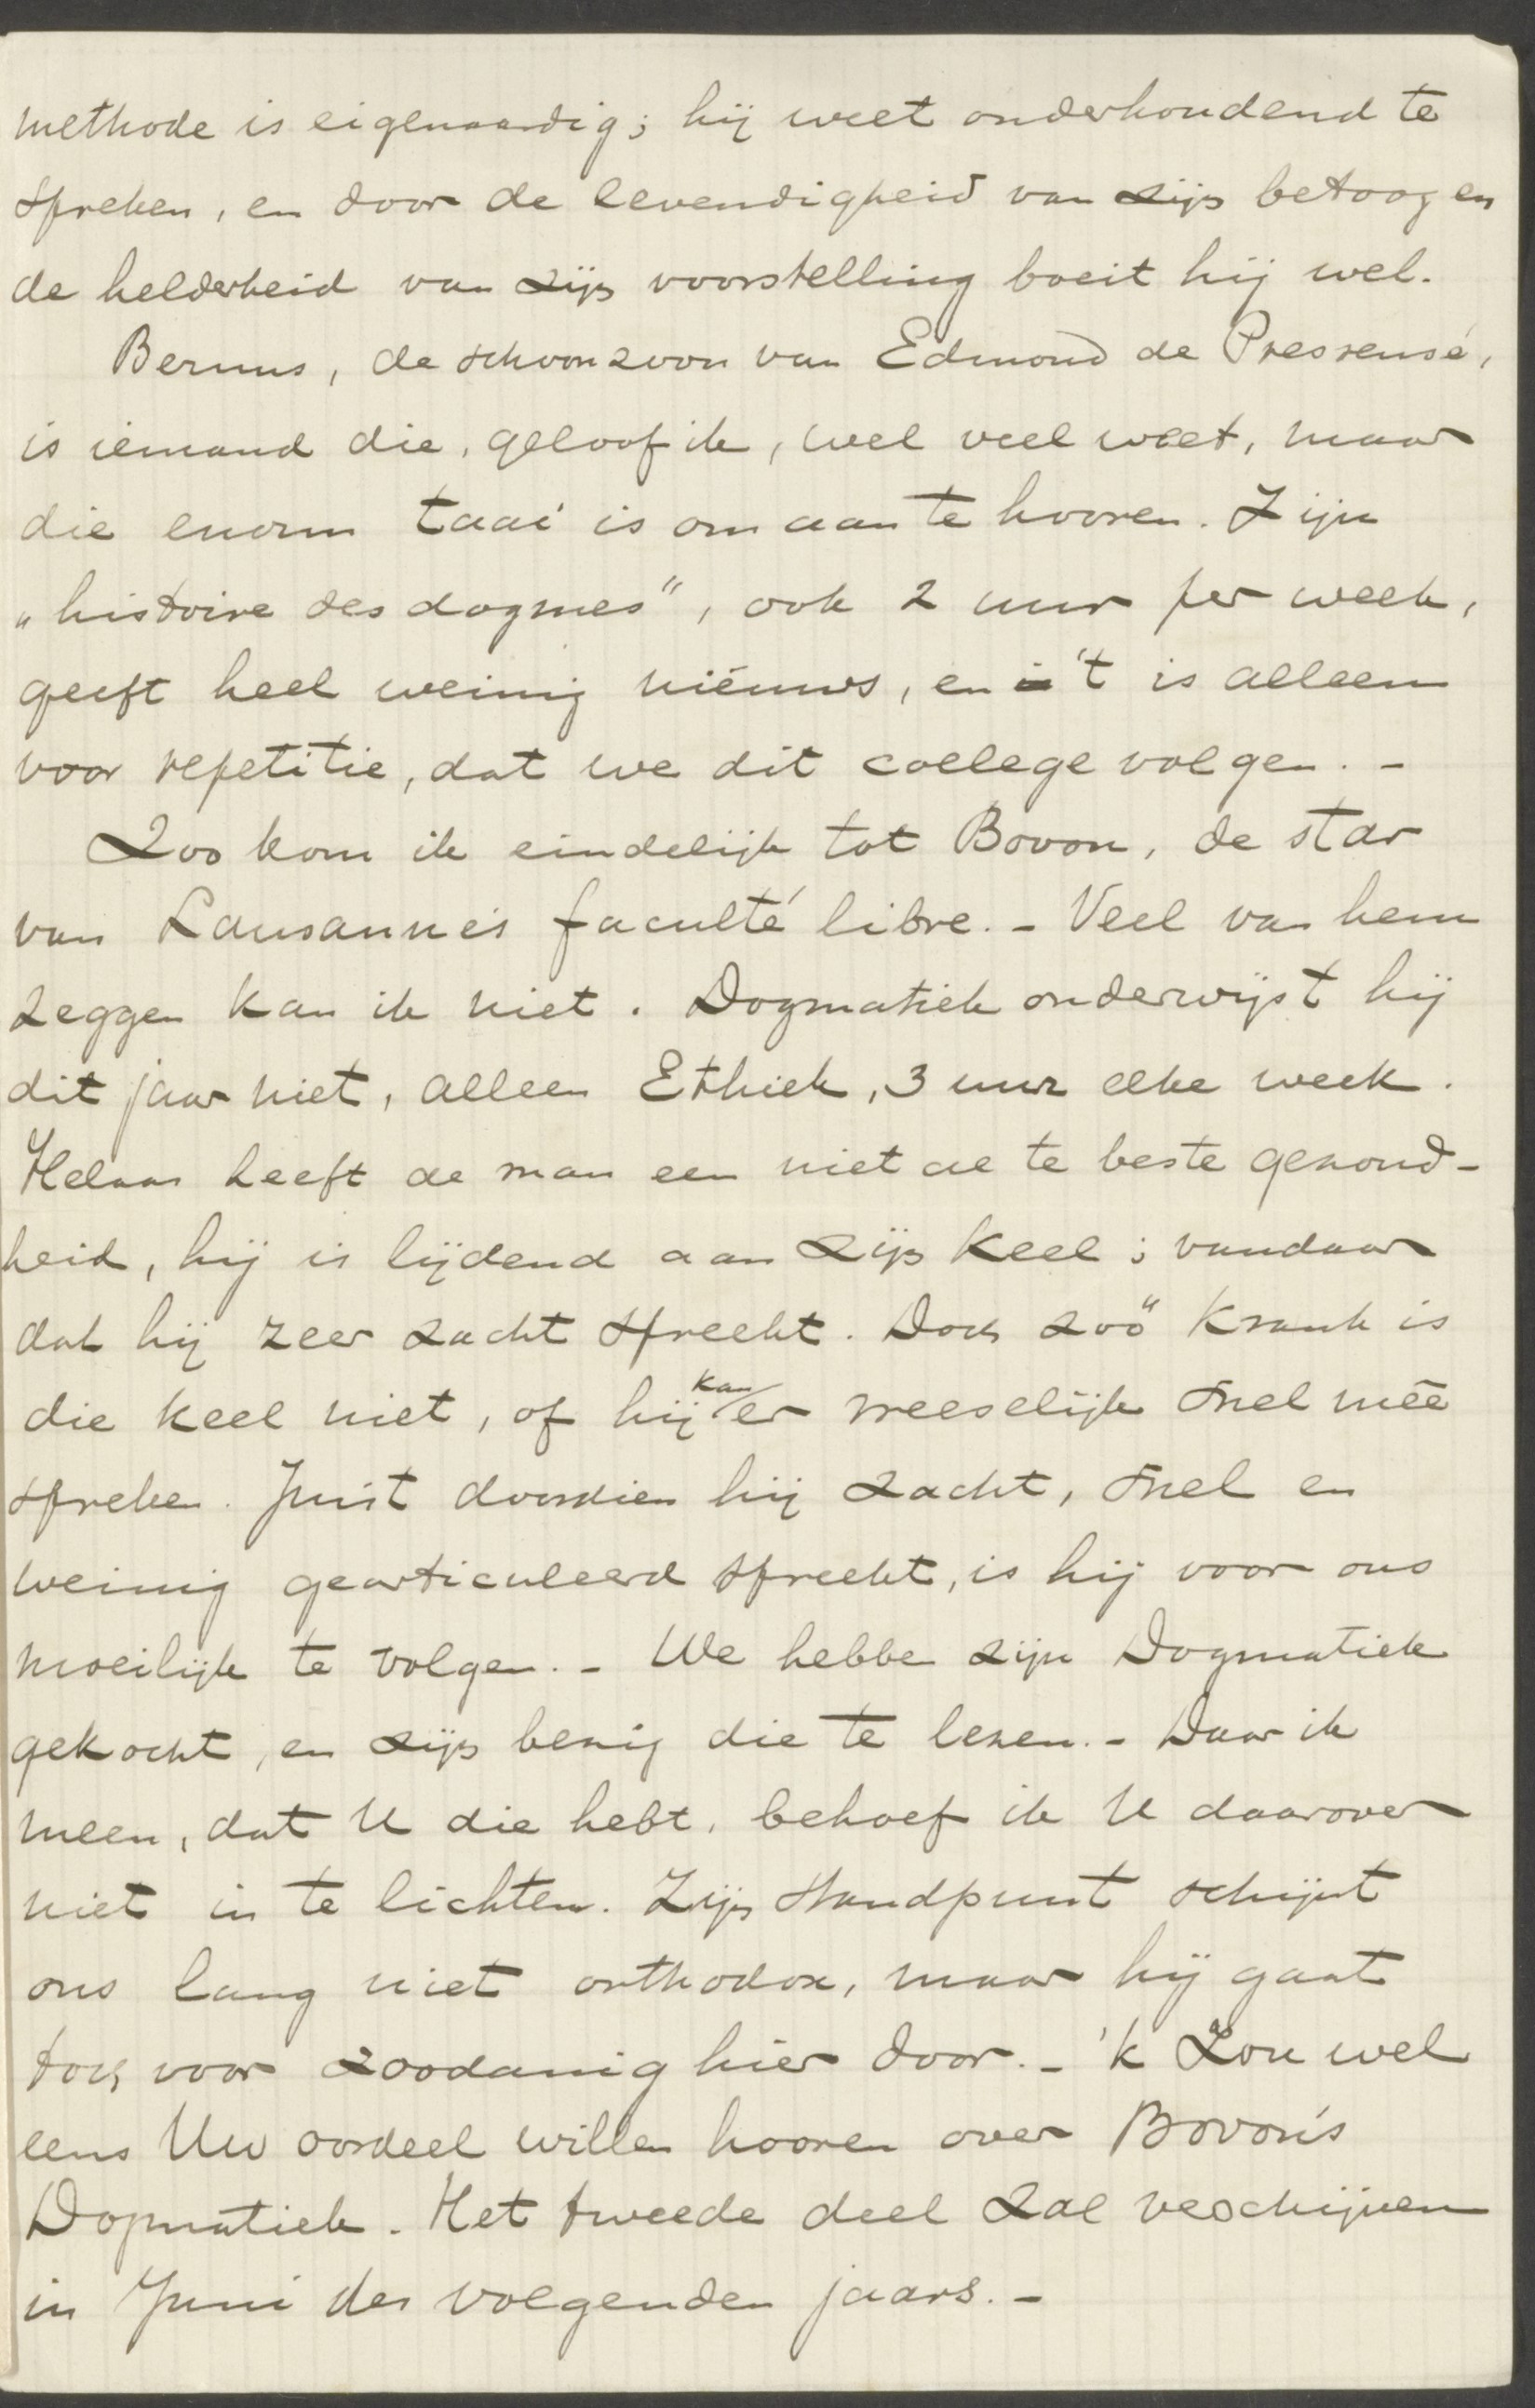 methode is eigenaardig; hij weet onderhoudend te
spreken, en door de levendigheid van zijn betoog en
de helderheid van zijn voorstelling boeit hij wel.
Bernus, de schoonzoon van Edmond de Pressensé,
is iemand die, geloof ik, wel veel weet, maar
die enorm taai is om aan te hooren. Zijn
„histoire des dogmes", ook 2 uur per week,
geeft heel weinig nieuws, en 't is alleen
voor repetitie, dat we dit college volgen. -
Zoo kom ik eindelijk tot Bovon, de star
van Lausanne's faculté libre. - Veel van hem
zeggen kan ik niet. Dogmatiek onderwijst hij
dit jaar niet, alleen Ethiek, 3 uur elke week.
Helaas heeft de man een niet al te beste gezond-
heid, hij is lijdend aan zijn keel; vandaar
dat hij zeer zacht spreekt. Doch zóó krank is
die keel niet, of hij kan er vreeselijk snel mēe
spreken. Juist doordien hij zacht, snel en
weinig gearticuleerd spreekt, is hij voor ons
moeilijk te volgen. - We hebben zijn Dogmatiek
gekocht, en zijn bezig die te lezen. - Daar ik
meen, dat U die hebt, behoef ik U daarover
niet in te lichten. Zijn standpunt schijnt
ons lang niet orthodox, maar hij gaat
toch voor zoodanig hier door. - 'k Zou wel
eens Uw oordeel willen hooren over Bovon's
Dogmatiek. Het tweede deel zal verschijnen
in Juni des volgenden jaars. -